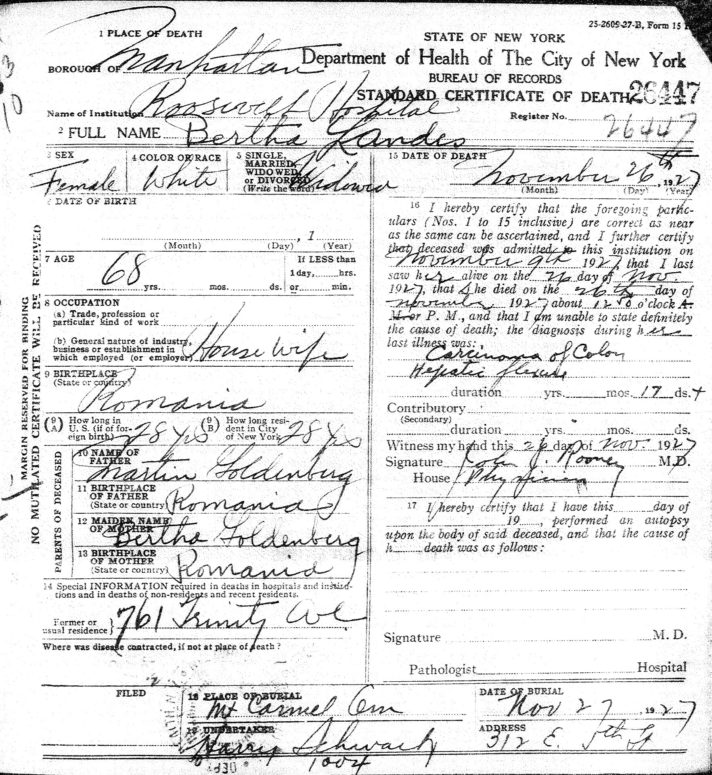 25-2609-27-B, Form 15
1 PLACE OF DEATH
STATE OF NEW YORK
BOROUGH OF Manhattan
Department of Health of The City of New York
BUREAU OF RECORDS
STANDARD CERTIFICATE OF DEATH 26447
Name of Institution Roosevelt Hospital
Register No. 26447
2 FULL NAME Bertha Landes
3 SEX Female
4 COLOR OR RACE White
5 SINGLE, MARRIED, WIDOWED OR DIVORCED (Write the word) Widowed
6 DATE OF BIRTH
, 1
(Month) (Day) (Year)
7 AGE 68 yrs. mos. ds.
If LESS than 1 day, hrs. or min.
8 OCCUPATION
(a) Trade, profession or particular kind of work
(b) General nature of industry, business or establishment in which employed (or employer) House Wife
9 BIRTHPLACE
(State or country) Romania
(9 A) How long in U. S. (if of foreign birth) 28 yrs
(9 B) How long resident in City of New York 28 yrs
PARENTS OF DECEASED
10 NAME OF FATHER Martin Goldenberg
11 BIRTHPLACE OF FATHER (State or country) Romania
12 MAIDEN NAME OF MOTHER Bertha Goldenberg
13 BIRTHPLACE OF MOTHER (State or country) Romania
14 Special INFORMATION required in deaths in hospitals and institutions and in deaths of non-residents and recent residents.
Former or usual residence 761 Trinity Ave
Where was disease contracted, if not at place of death ?
MARGIN RESERVED FOR BINDING
NO MUTILATED CERTIFICATE WILL BE RECEIVED
15 DATE OF DEATH
November 26th, 1927
(Month) (Day) (Year)
16 I hereby certify that the foregoing partic-
ulars (Nos. 1 to 15 inclusive) are correct as near
as the same can be ascertained, and I further certify
that deceased was admitted to this institution on
November 9th 1927, that I last
saw her alive on the 26 day of Nov.
1927, that she died on the 26th day of
November 1927 about 12 o'clock A.
M. or P. M., and that I am unable to state definitely
the cause of death; the diagnosis during her
last illness was:
Carcinoma of Colon
Hepatic flexure
duration yrs. mos. 17 ds. +
Contributory
(Secondary)
duration yrs. mos. ds.
Witness my hand this 26 day of Nov. 1927
Signature John J. Rooney M.D.
House Physician
17 I hereby certify that I have this day of
19 , performed an autopsy
upon the body of said deceased, and that the cause of
h death was as follows:
Signature M. D.
Pathologist Hospital
FILED
18 PLACE OF BURIAL
Mt Carmel Cem
DATE OF BURIAL
Nov 27 1927
19 UNDERTAKER
Harry Schwartz
1004
ADDRESS
312 E. 5th St